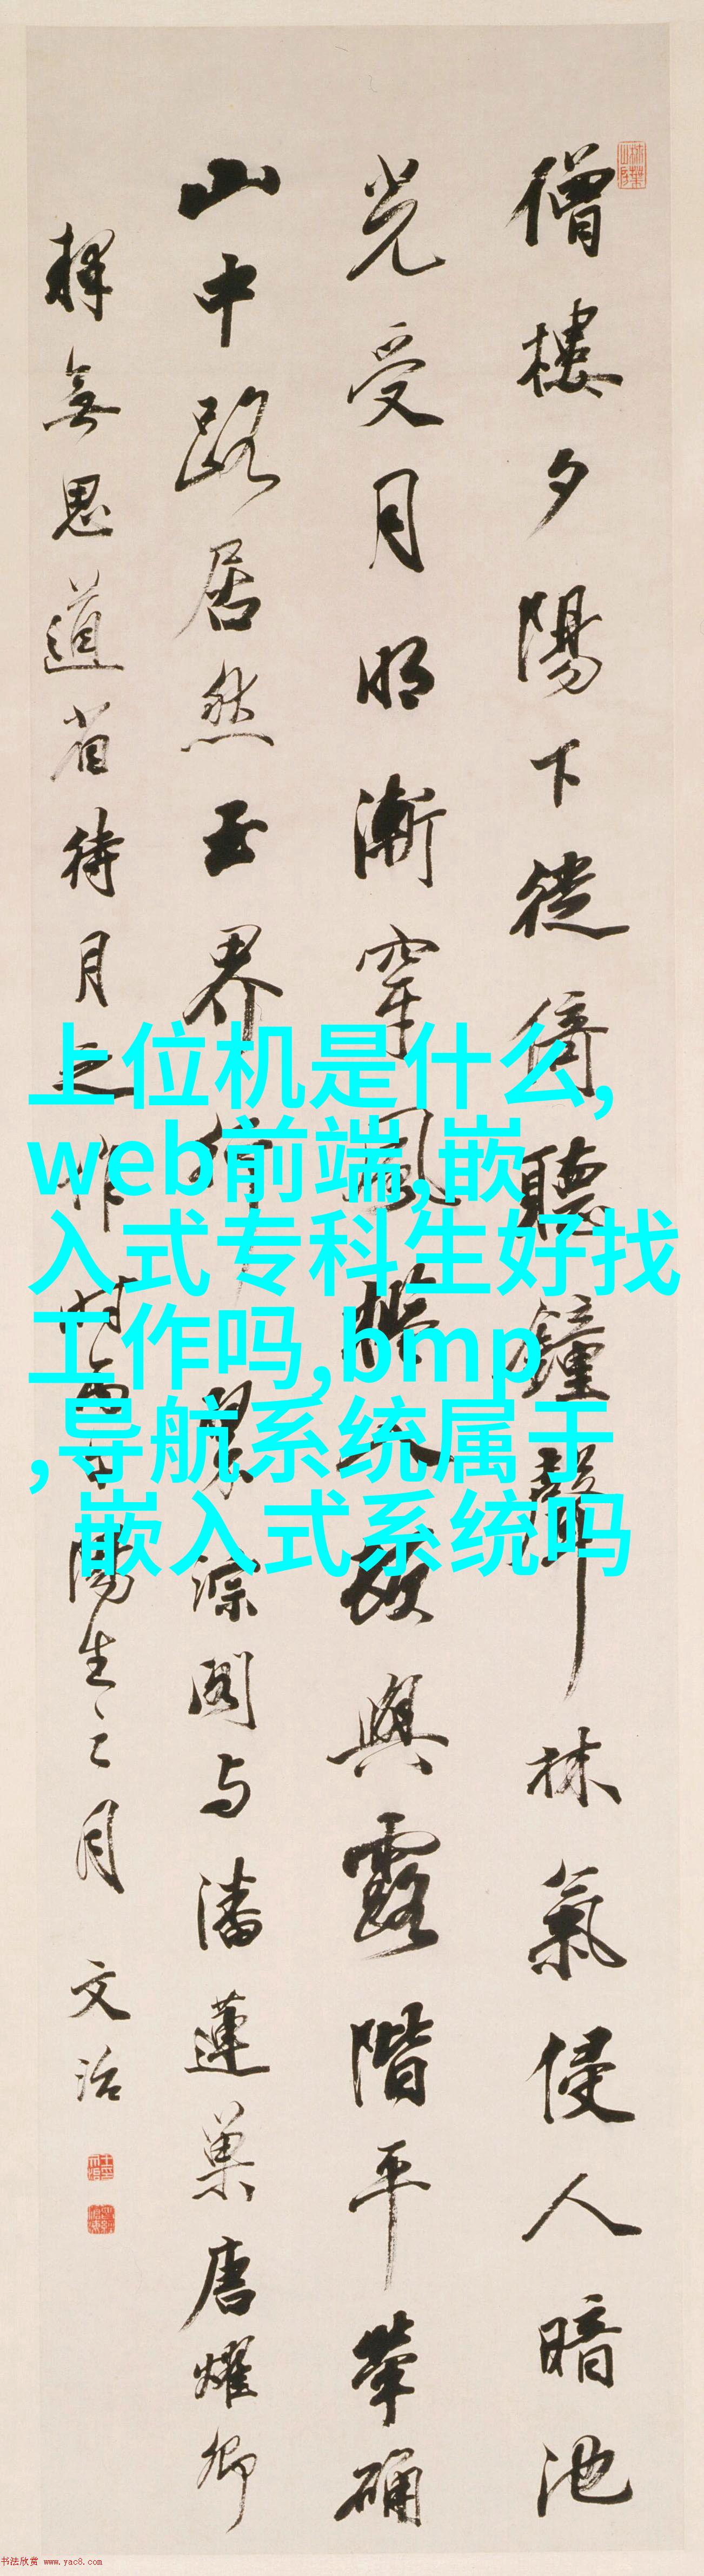 僧樓夕陽下徙倚聽鐘聲林氣侵人暗池
光受月明漸穿風櫺人欲與露階平犖确
山中路居然玉界行
深閣与潘蓮巢唐耀卿
擇無思道省待月之作
陽生之月 文治
上位机是什么,
web前端,嵌
入式专科生好找
工作吗,bmp
,导航系统属于
嵌入式系统吗
书法欣赏 www.yac8.com